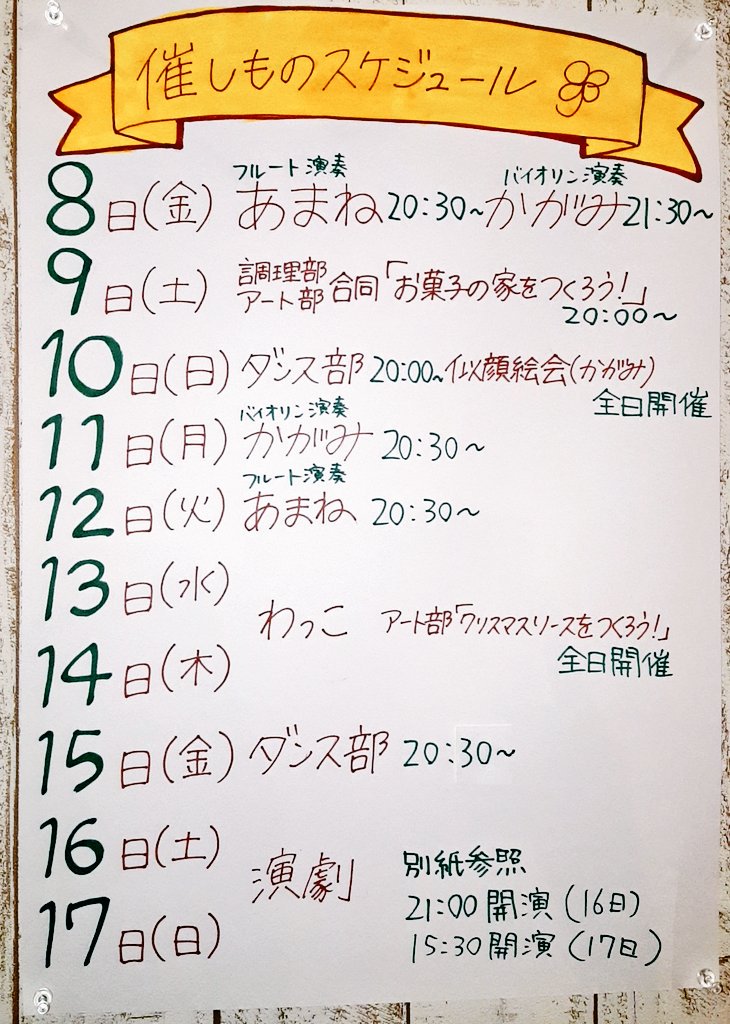 催しものスケジュール
フルート演奏 バイオリン演奏
8日(金) あまね20:30~かがみ21:30~
調理部
9日(土) アート部 合同「お菓子の家をつくろう!」
20:00~
10日(日) ダンス部 20:00~似顔絵会(かがみ)
全日開催
バイオリン演奏
11日(月) かがみ 20:30~
フルート演奏
12日(火) あまね 20:30~
13日(水)
わっこ アート部「クリスマスリースをつくろう!」
14日(木) 全日開催
15日(金) ダンス部 20:30~
16日(土) 別紙参照
演劇 21:00開演(16日)
17日(日) 15:30開演(17日)